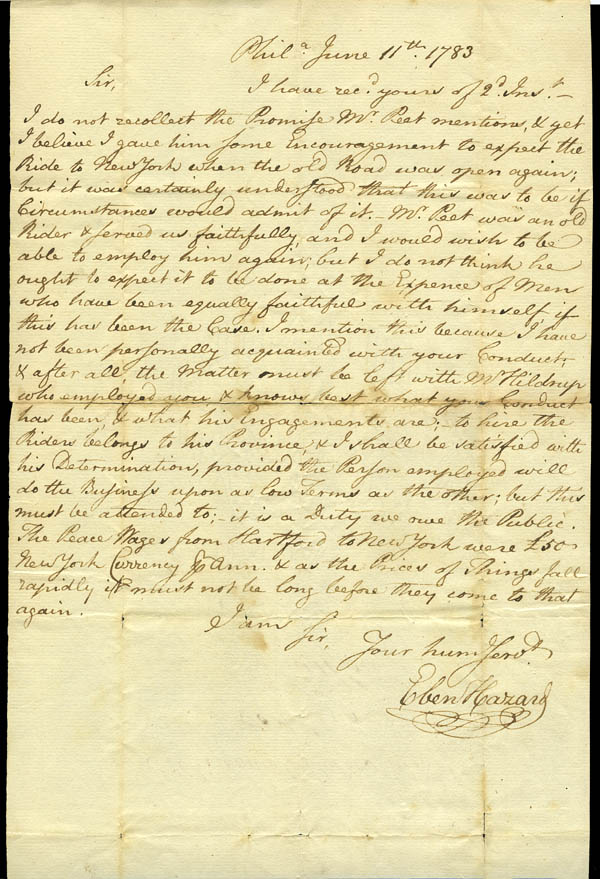 Phil.a June 11th. 1783
Sir, I have rec.d yours of 2.d Ins.t –
I do not recollect the Promise Mr. Peet mentions, & yet
I believe I gave him some Encouragement to expect the
Ride to New York when the old Road was open again;
but it was certainly understood that this was to be if
Circumstances would admit of it. – Mr. Peet was an old
Rider & served us faithfully, and I would wish to be
able to employ him again; but I do not think he
ought to expect it to be done at the Expence of Men
who have been equally faithful with himself if
this has been the Case. I mention this because I have
not been personally acquainted with your Conduct;
& after all, the Matter must be left with Mr. Hildrup
who employed you & knows best what your Conduct
has been, & what his Engagements are; – to hire the
Riders belongs to his Province, & I shall be satisfied with
his Determination, provided the Person employed will
do the Business upon as low Terms as the other; but this
must be attended to; – it is a Duty we owe the Public.
The Peace Wages from Hartford to New York were £50
New York Currency ⅌ Ann. & as the Prices of Things fall
rapidly it must not be long before they come to that
again.
I am Sir,
Your hum Serv.t
Eben Hazard